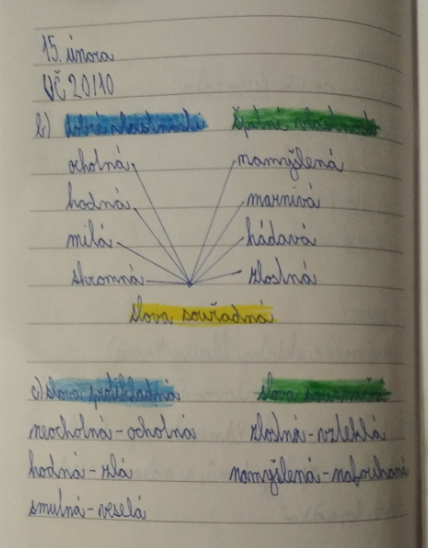 15. února
UČ 20/10
b) dobré vlastnosti špatné vlastnosti
ochotná namyšlená
hodná marnivá
milá hádavá
skromná zlostná
slova souřadná
c) slova protikladná slova souznačná
neochotná - ochotná zlostná - vzteklá
hodná - zlá namyšlená - nafoukaná
smutná - veselá